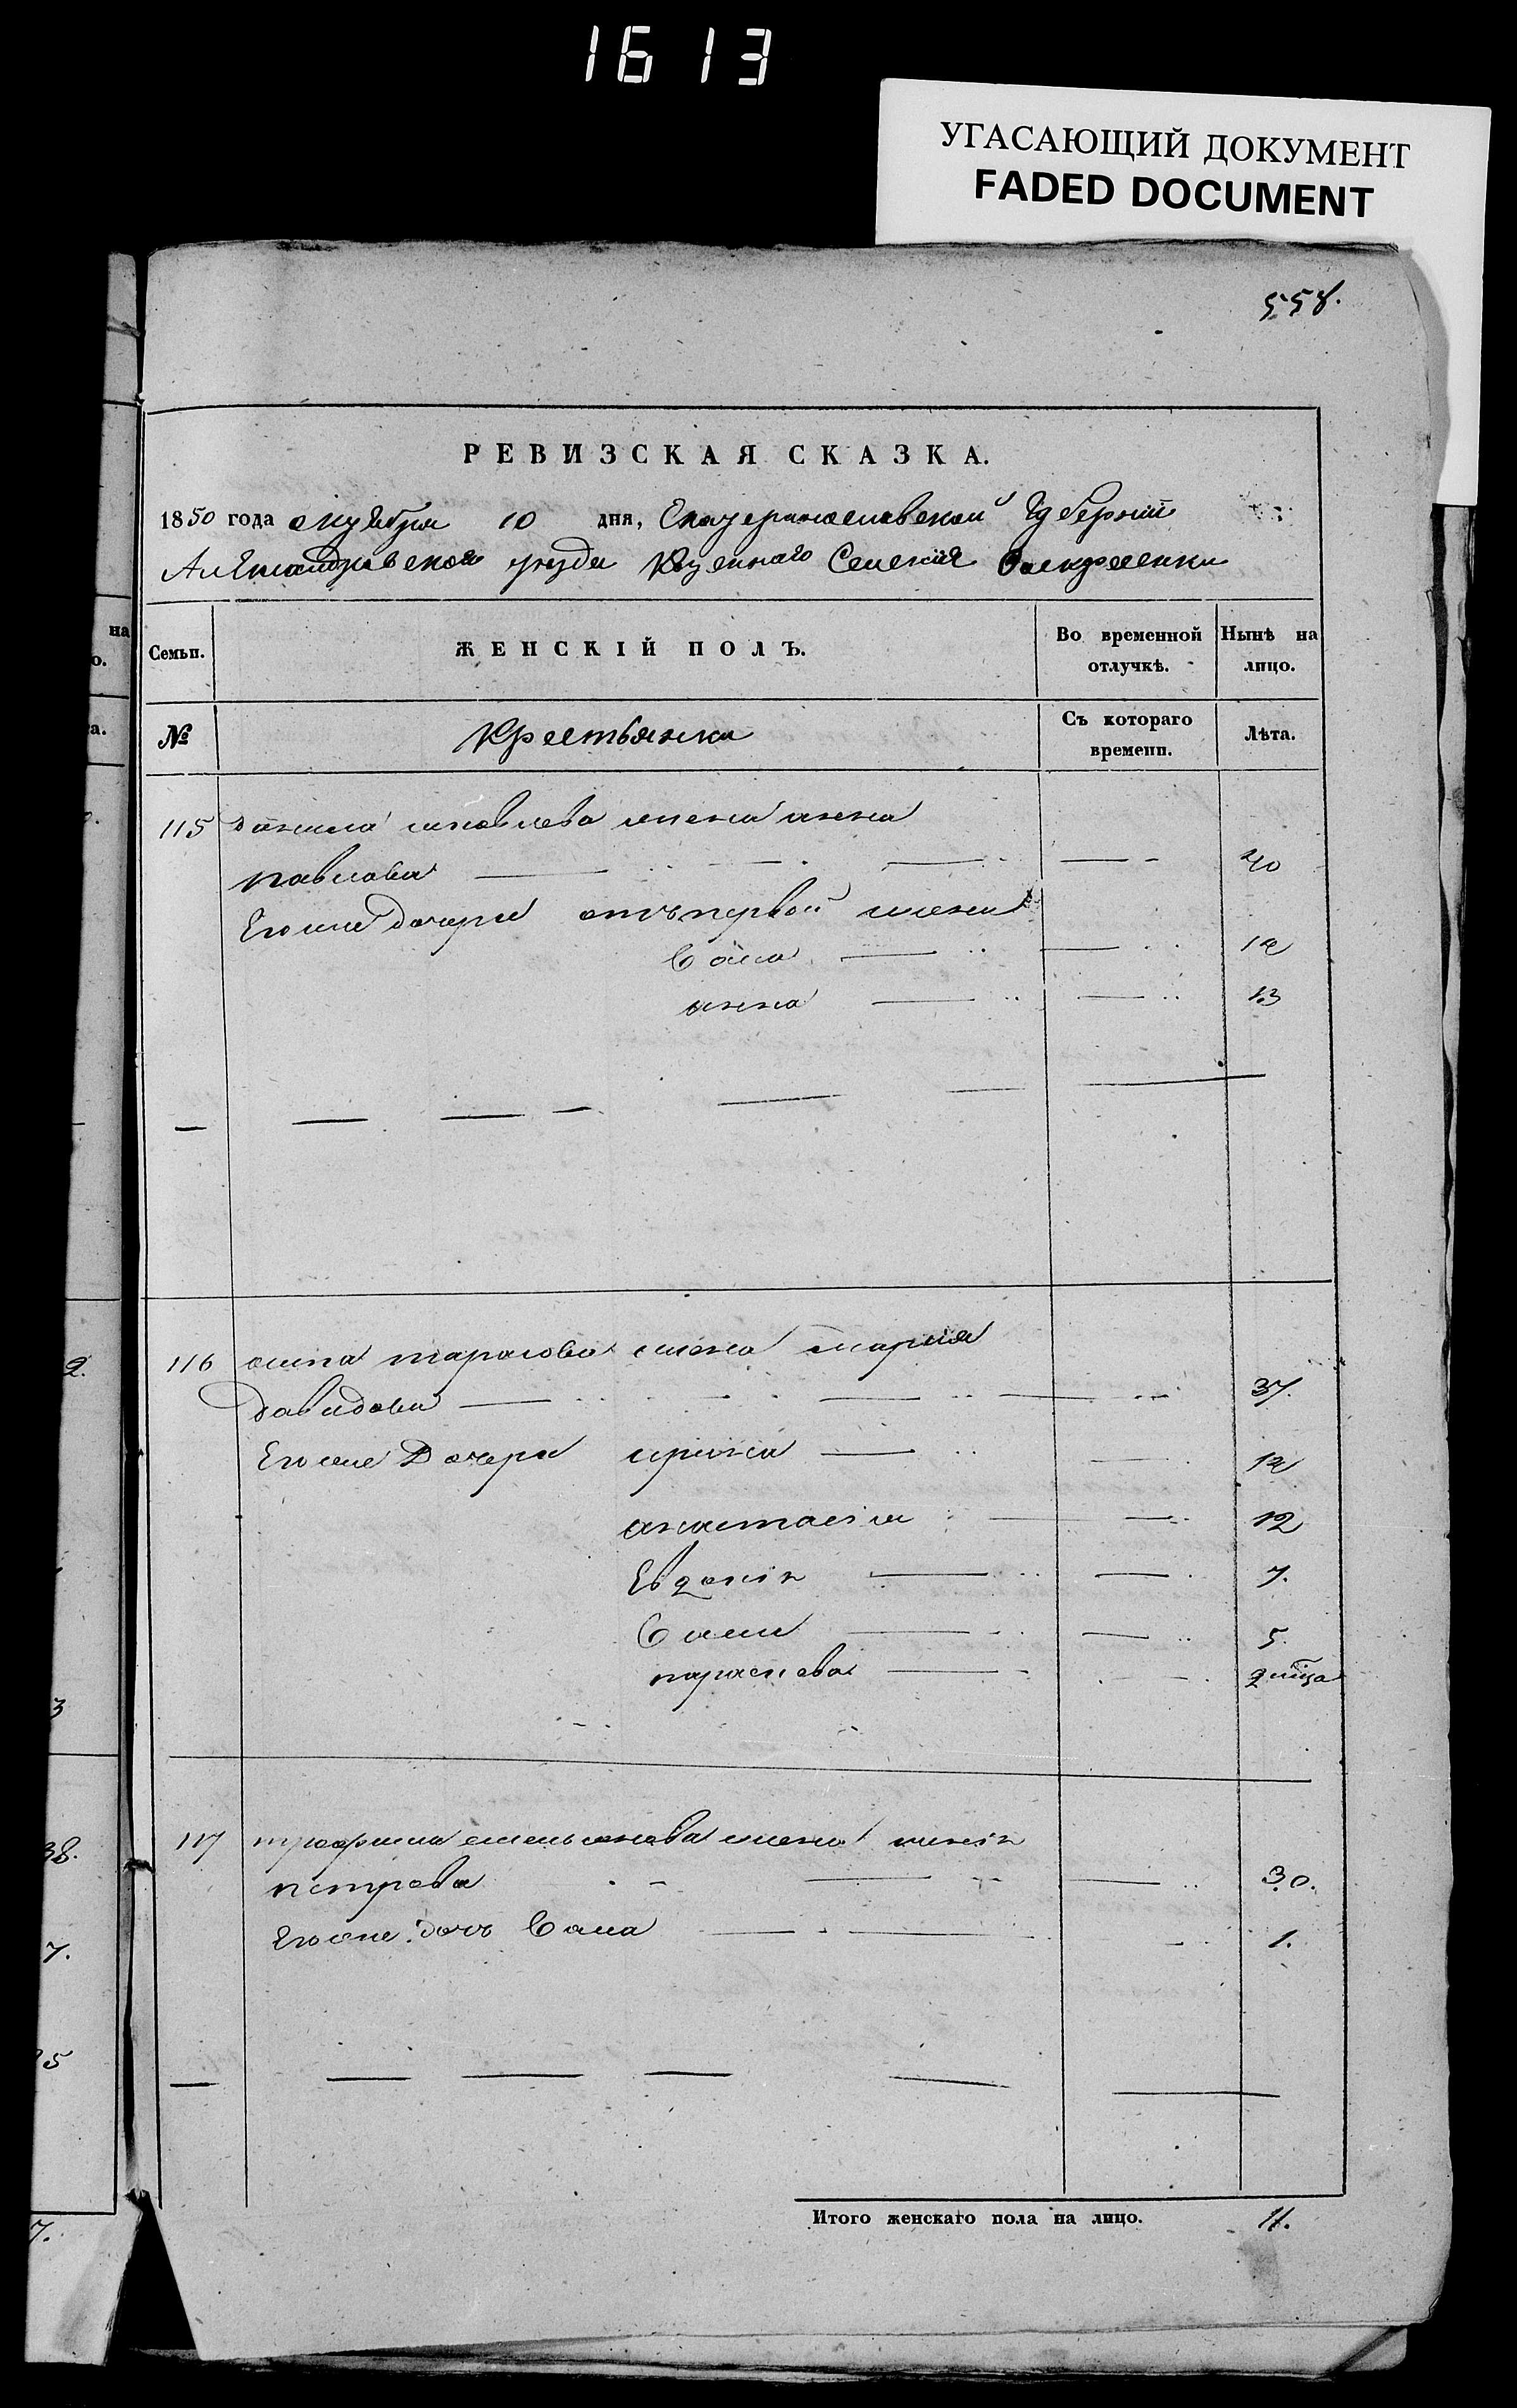 1613
УГАСАЮЩИЙ ДОКУМЕНТ
FADED DOCUMENT
558.
РЕВИЗСКАЯ СКАЗКА.
1850 года октября 10 дня, Екатеринославской Губерніи
Александровскаго уезда Казеннаго Селенія Воскресенки
на
о.
Семьи.
ЖЕНСКІЙ ПОЛЪ.
Во временной отлучкѣ.
Нынѣ на лицо.
а.
№
Крестьянки
Съ котораго времени.
Лѣта.
115 данила яковлева жена анна
павлова 40
Его же дочери отъ первой жены
анна 13
2.
116 осипа тарасова жена мария
давидова 37.
Его же Дочери ирина
анастасія 12
Евдокія 7.
5.
парасковя
3
117 трофима емельянова жена
38.
петрова 30.
Его же дочь 1.
7.
5
Итого женскаго пола на лицо. 11.
7.